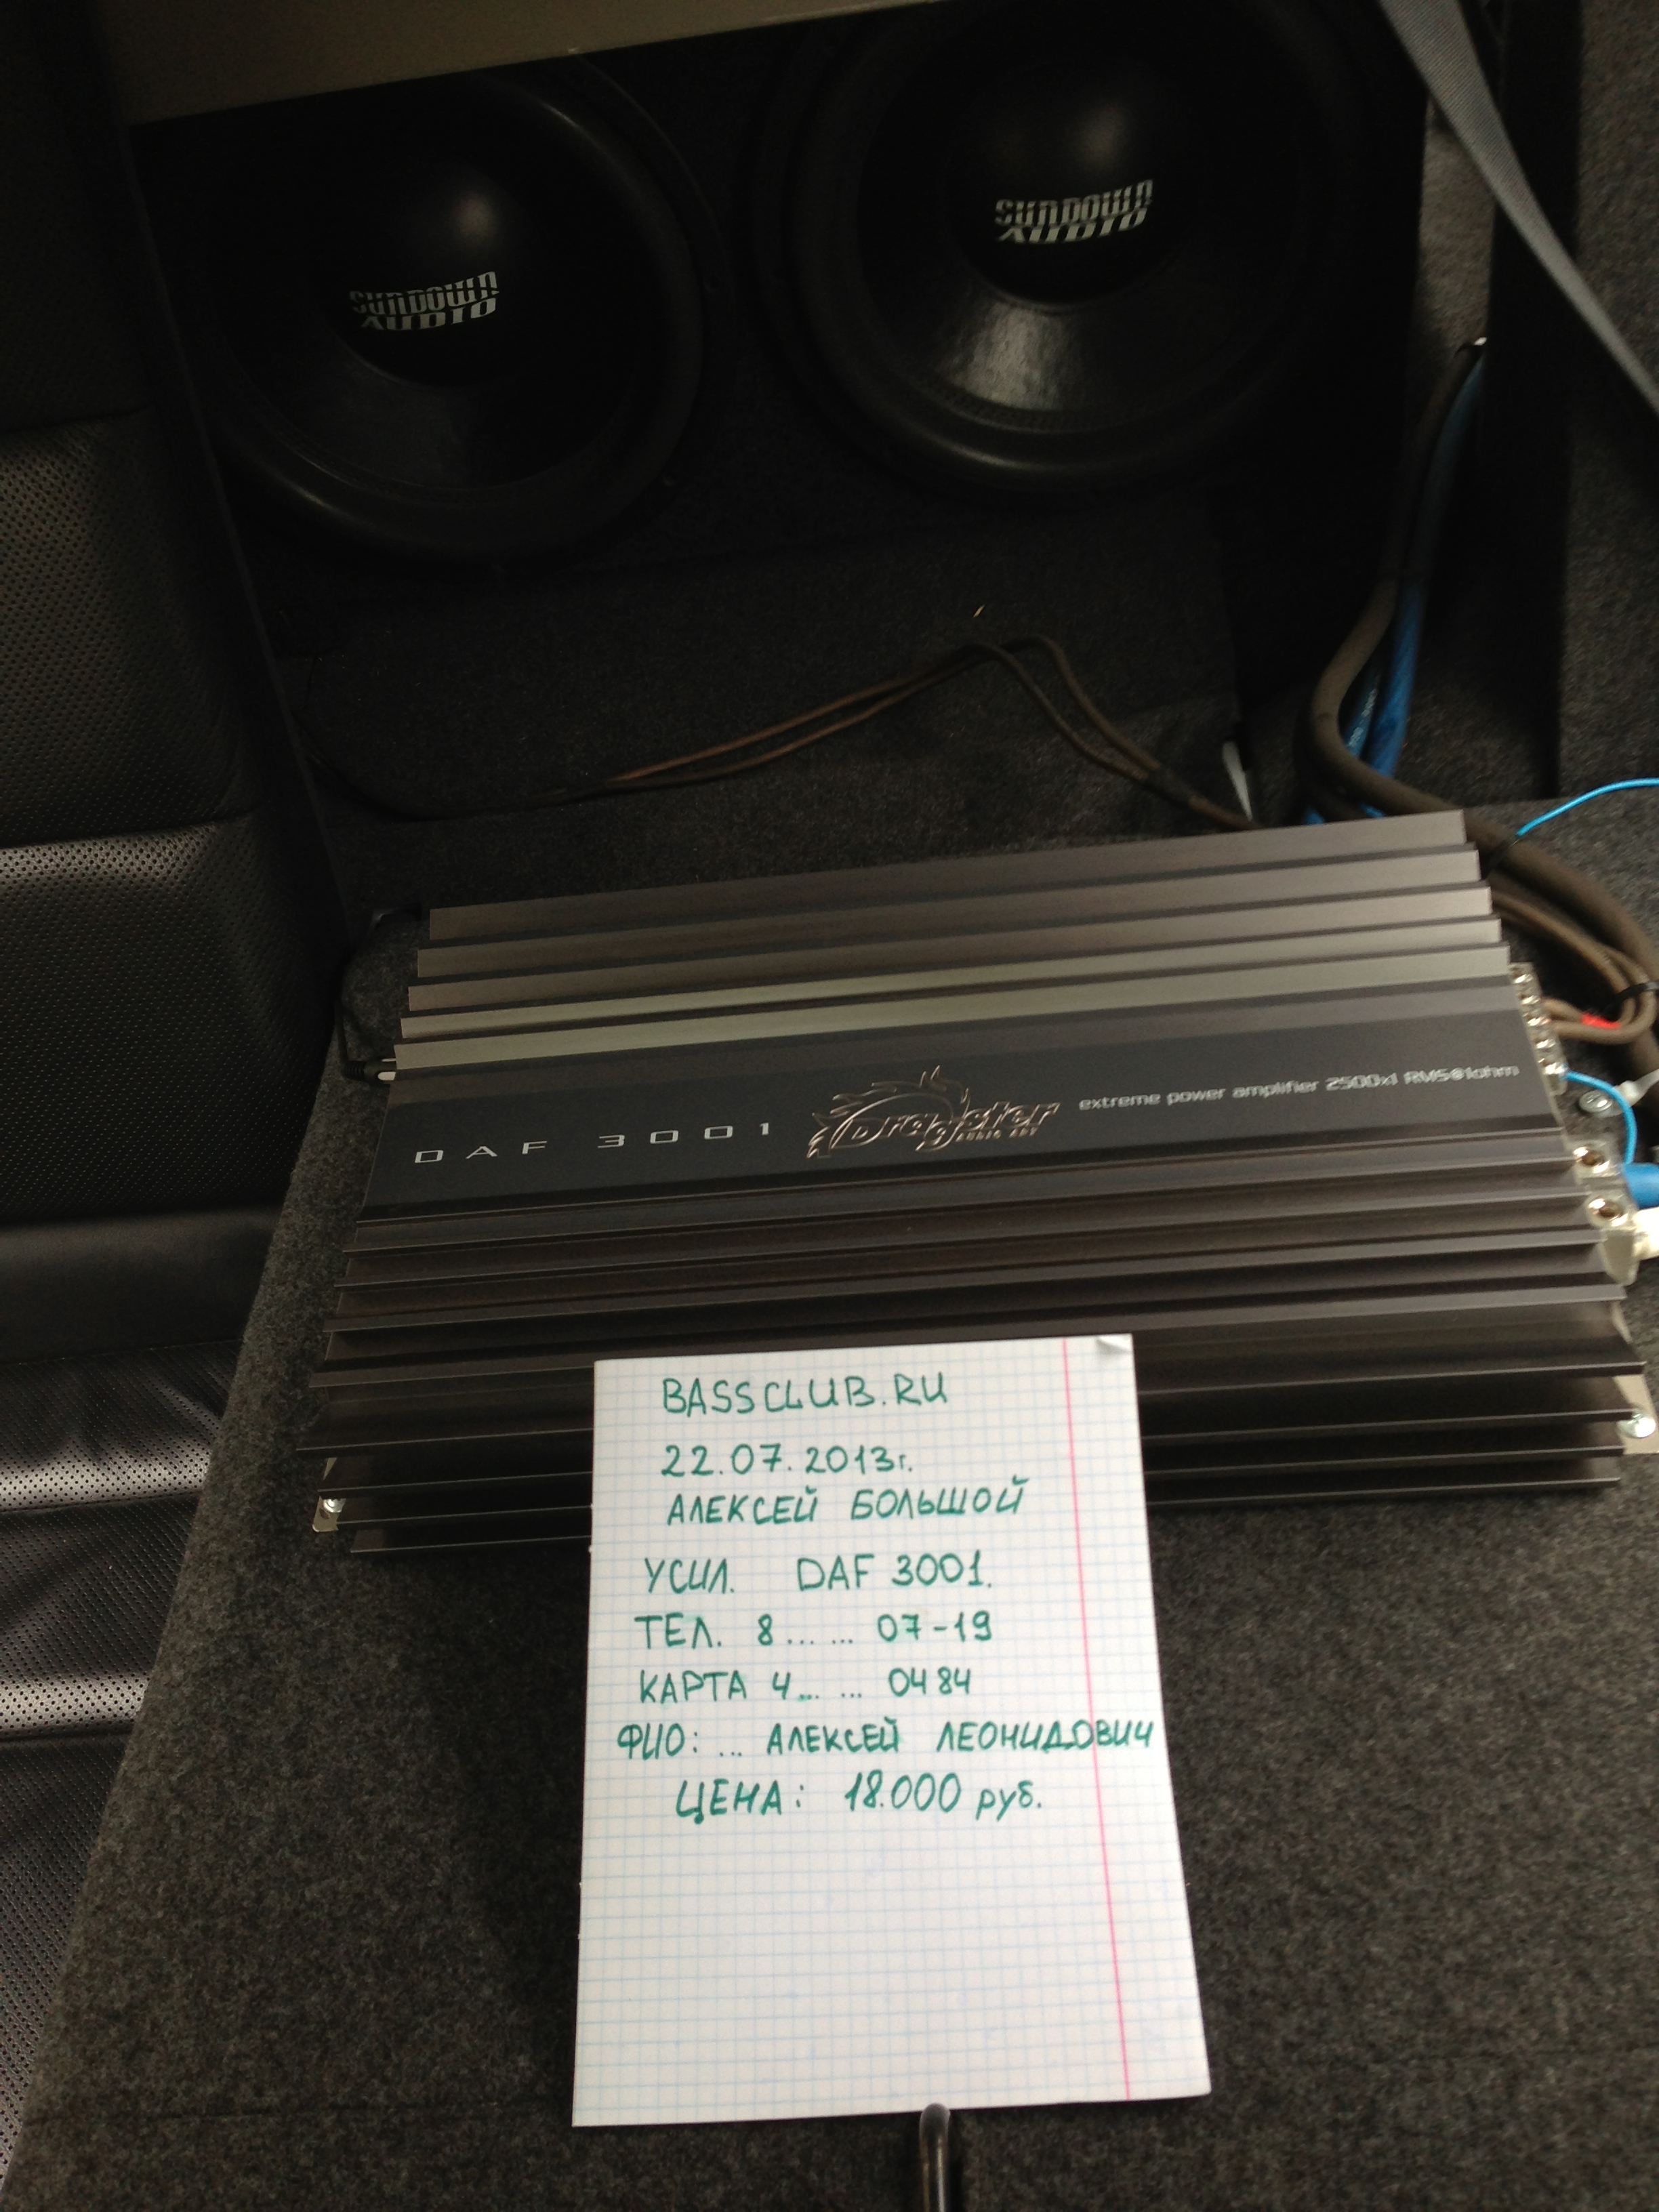 SUNDOWN
AUDIO
SUNDOWN
AUDIO
DAF 3001
Dragster
extreme power amplifier 2500x1 RMS@1ohm
BASSCLUB.RU
22.07.2013г.
АЛЕКСЕЙ БОЛЬШОЙ
УСИЛ. DAF 3001.
ТЕЛ. 8...... 07-19
КАРТА 4... ... 0484
ФИО: ... АЛЕКСЕЙ ЛЕОНИДОВИЧ
ЦЕНА: 18.000 руб.